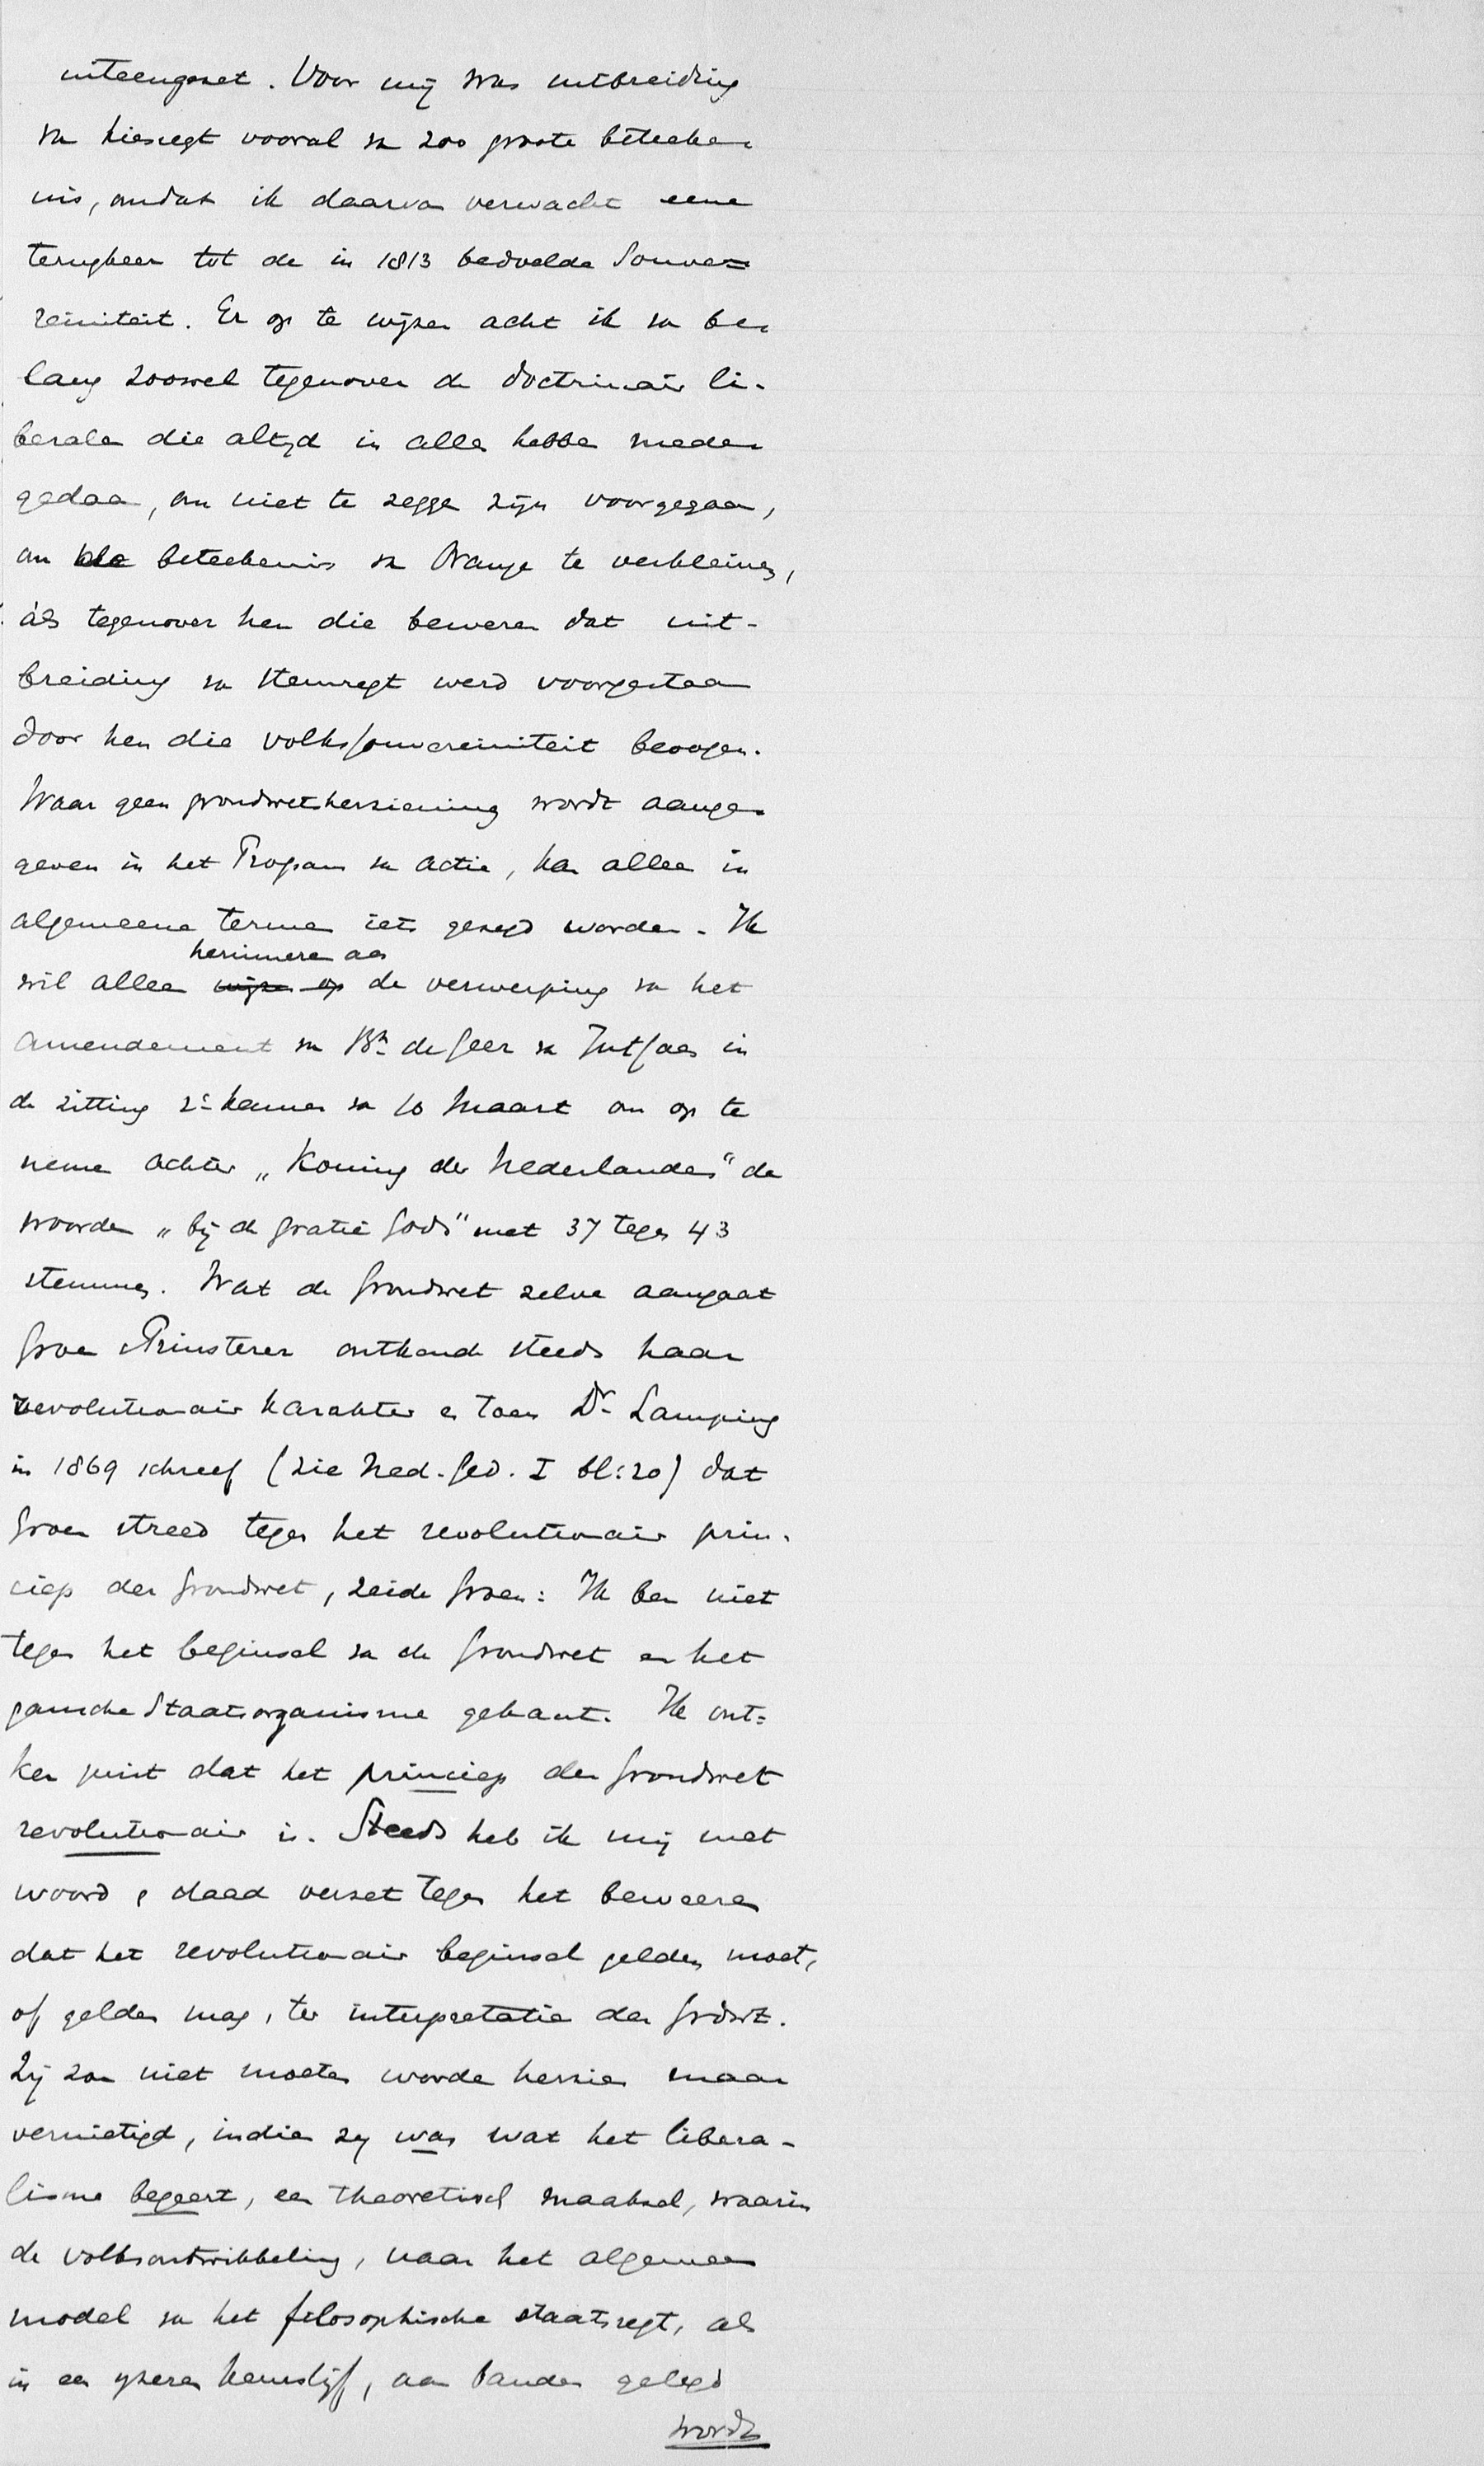 uiteengezet. Voor mij was uitbreiding
van kiesregt vooral van zoo groote beteeke-
nis, omdat ik daarvan verwacht eene
terugkeer tot de in 1813 bedoelde Souve=
reiniteit. Er op te wijzen acht ik van be-
lang zoowel tegenover de doctrinair li-
beralen die altijd in alles hebben mede-
gedaan, om niet te zeggen zijn voorgegaan,
om de beteekenis van Oranje te verkleinen,
áls tegenover hen die beweren dat uit-
breiding van stemregt werd voorgestaan
door hen die volkssouvereiniteit beoogen.
Waar geen grondwetsherziening wordt aange-
geven in het Program van actie, kan alleen in
algemeene termen iets gezegd worden. Ik
herinneren aan
wil alleen wijzen op de verwerping van het
amendement van Bn de Geer van Jutfaas in
de zitting 2e kamer van 10 Maart om op te
nemen achter „Koning der Nederlanden" de
woorden „bij de gratie Gods" met 37 tegen 43
stemmen. Wat de Grondwet zelve aangaat
Groen v Prinsterer ontkende steeds haar
revolutionair karakter en toen Dr Lamping
in 1869 schreef (zie Ned. Ged. I bl: 20) dat
Groen streed tegen het revolutionair prin-
ciep der Grondwet, zeide Groen: Ik ben niet
tegen het beginsel van de Grondwet en het
gansche Staatsorganisme gekant. Ik ont=
ken juist dat het princiep der Grondwet
revolutionair is. Steeds heb ik mij met
woord & daad verzet tegen het beweeren
dat het revolutionair beginsel gelden moet,
of gelden mag, ter interpretatie der Grdwt.
Zij zou niet moeten worden herzien maar
vernietigd, indien zy was wat het libera-
lisme begeert, een theoretisch maaksel, waarin
de volksontwikkeling, naar het algemeen
model van het filosophische staatsregt, als
in een yzeren keurslijf, aan banden gelegd
wordt